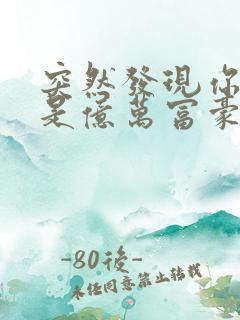 突然發現你
是億萬富豪
-80後-
未任同意禁止轉載